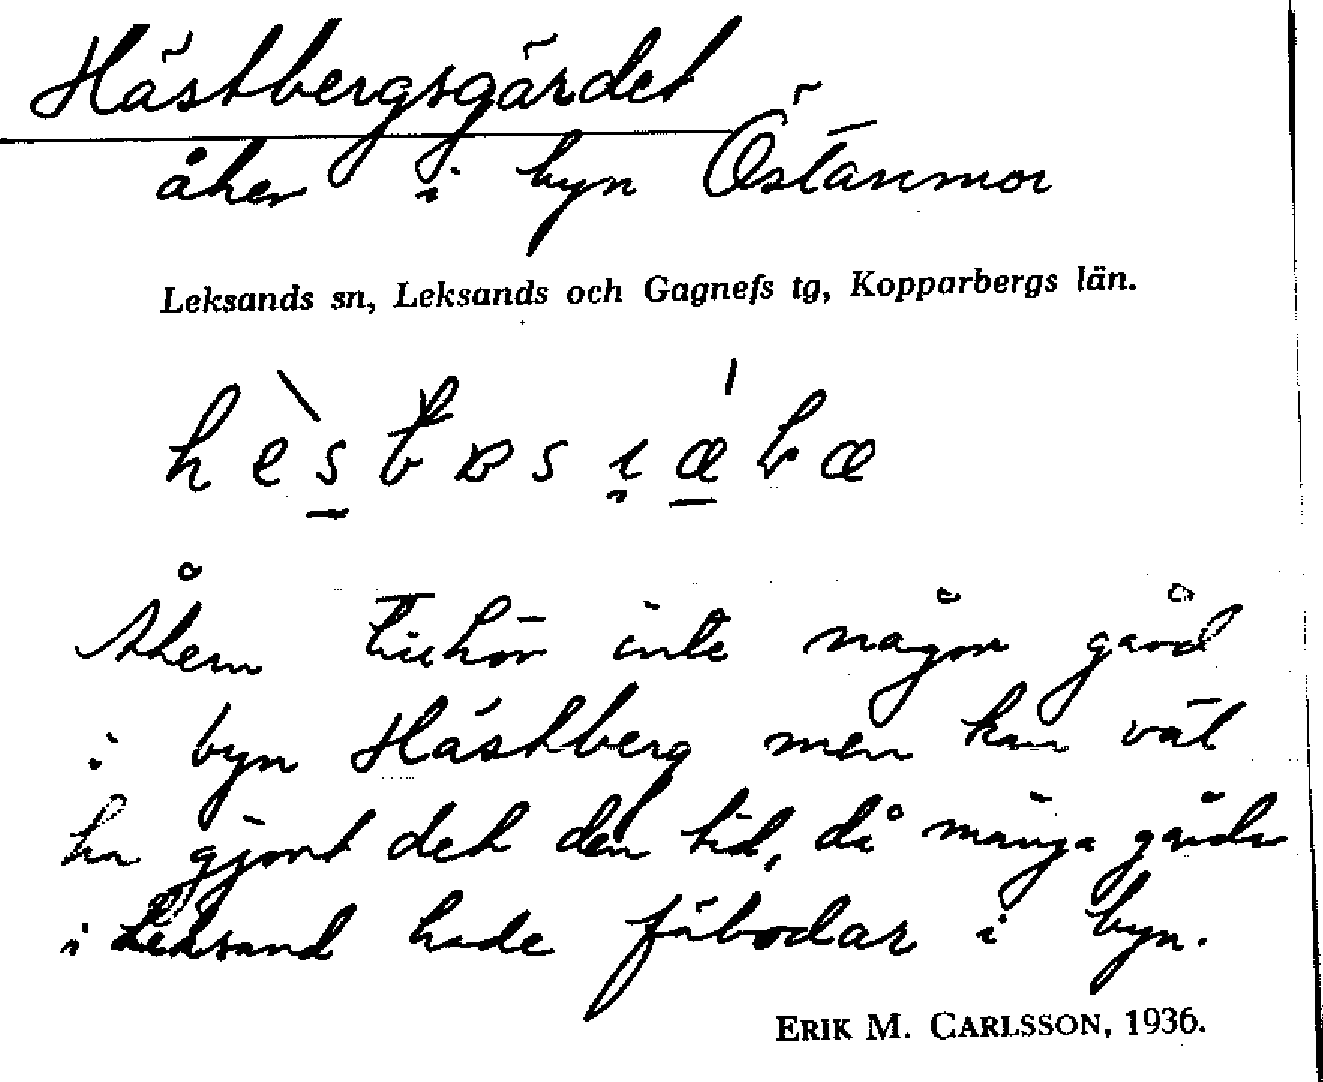 Hästbergsgärdet
åker i byn Östanmor
Leksands sn, Leksands och Gagnefs tg, Kopparbergs län.
Åkern tillhör inte någon gård
i byn Hästberg men kan väl
ha gjort det den tid, då många gårdar
i Leksand hade fäbodar i byn.
ERIK M. CARLSSON, 1936.